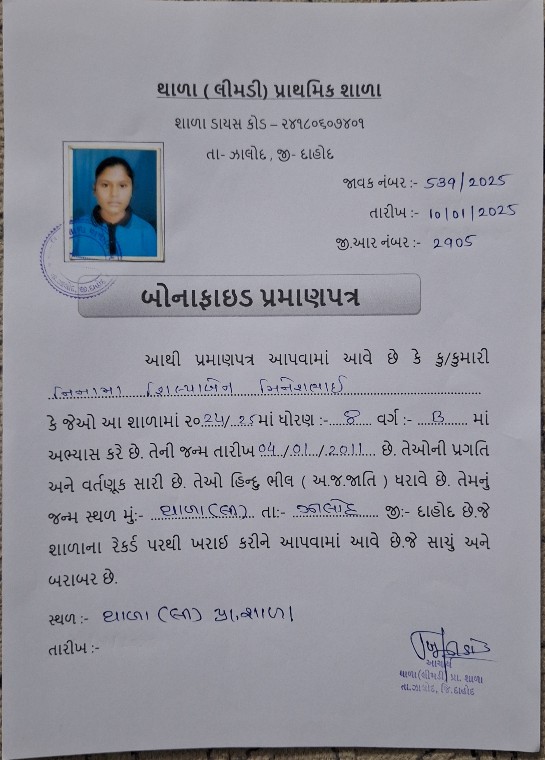 થાળા ( લીમડી) પ્રાથમિક શાળા
શાળા ડાયસ કોડ – ૨૪૧૮૦૬૦૭૪૦૧
તા- ઝાલોદ , જી- દાહોદ
જાવક નંબર :- 539/2025
તારીખ :- 10/01/2025
જી.આર નંબર :- 2905
બોનાફાઇડ પ્રમાણપત્ર
આથી પ્રમાણપત્ર આપવામાં આવે છે કે કુ/કુમારી
નિનામા શિલ્પાબેન મિનેશભાઈ
કે જેઓ આ શાળામાં ૨૦24/25માં ધોરણ :- 8 વર્ગ :- B માં
અભ્યાસ કરે છે. તેની જન્મ તારીખ 04/01/2011 છે. તેઓની પ્રગતિ
અને વર્તણૂક સારી છે. તેઓ હિન્દુ ભીલ ( અ.જ.જાતિ ) ધરાવે છે. તેમનું
જન્મ સ્થળ મું:- થાળા(લી) તા:- ઝાલોદ જી:- દાહોદ છે.જે
શાળાના રેકર્ડ પરથી ખરાઈ કરીને આપવામાં આવે છે.જે સાચું અને
બરાબર છે.
સ્થળ :- થાળા (લી) પ્રા.શાળા
તારીખ :-
આચાર્ય
થાળા(લીમડી) પ્રા. શાળા
તા.ઝાલોદ, જિ.દાહોદ